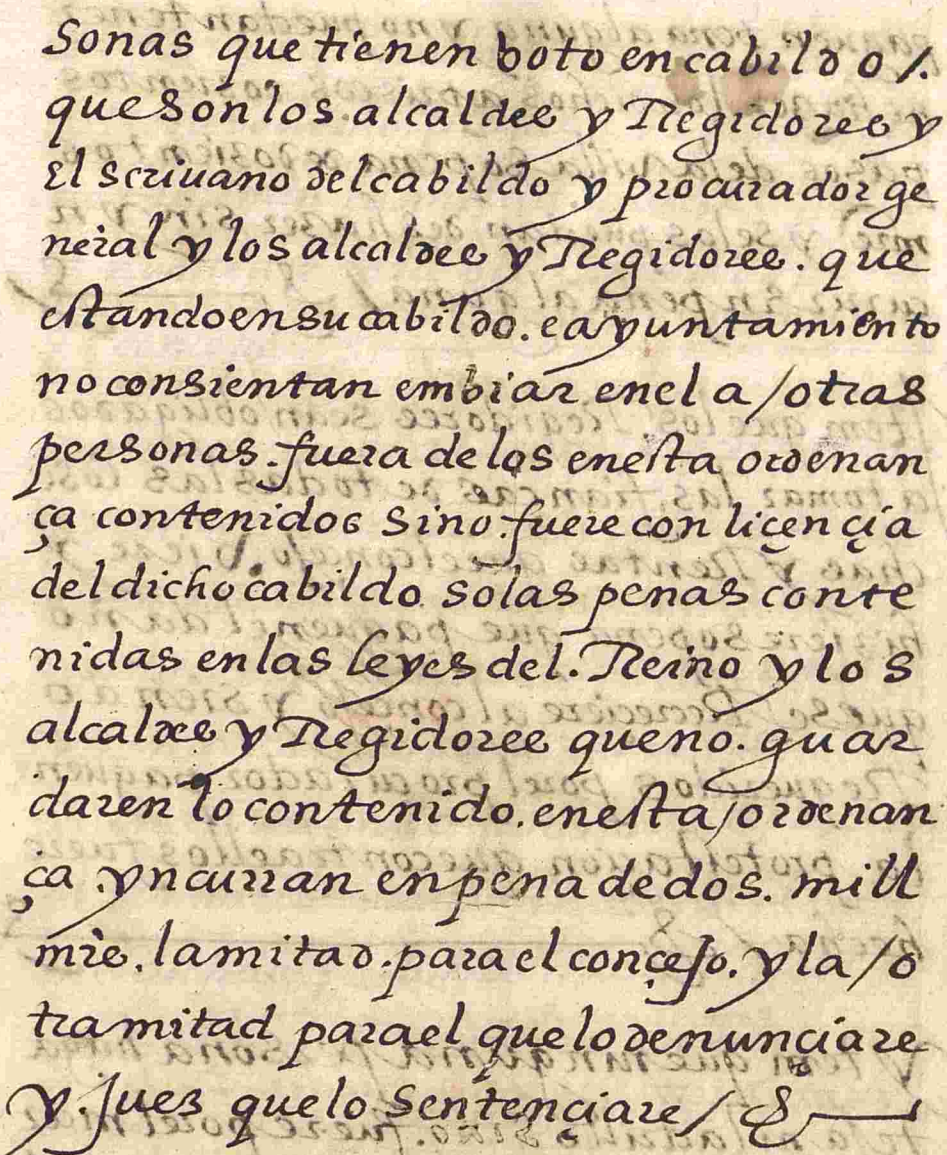 sonas que tienen boto en cabildo /.
que son los alcaldes y Regidores y
El scriuano del cabildo y procurador ge
neral y los alcaldes y Regidores. que
estando en su cabildo. e ayuntamiento
no consientan embiar en el a / otras
personas. fuera de los en esta ordenan
ça contenidos sino. fuere con liçençia
del dicho cabildo so las penas conte
nidas en las leyes del. Reino y los
alcaldes y Regidores que no. guar
daren lo contenido. en esta / ordenan
ça. yncurran en pena de dos. mill
mrs. la mitad. para el conçejo. y la / o
tra mitad para el que lo denunçiare
y. Jues que lo sentençiare /